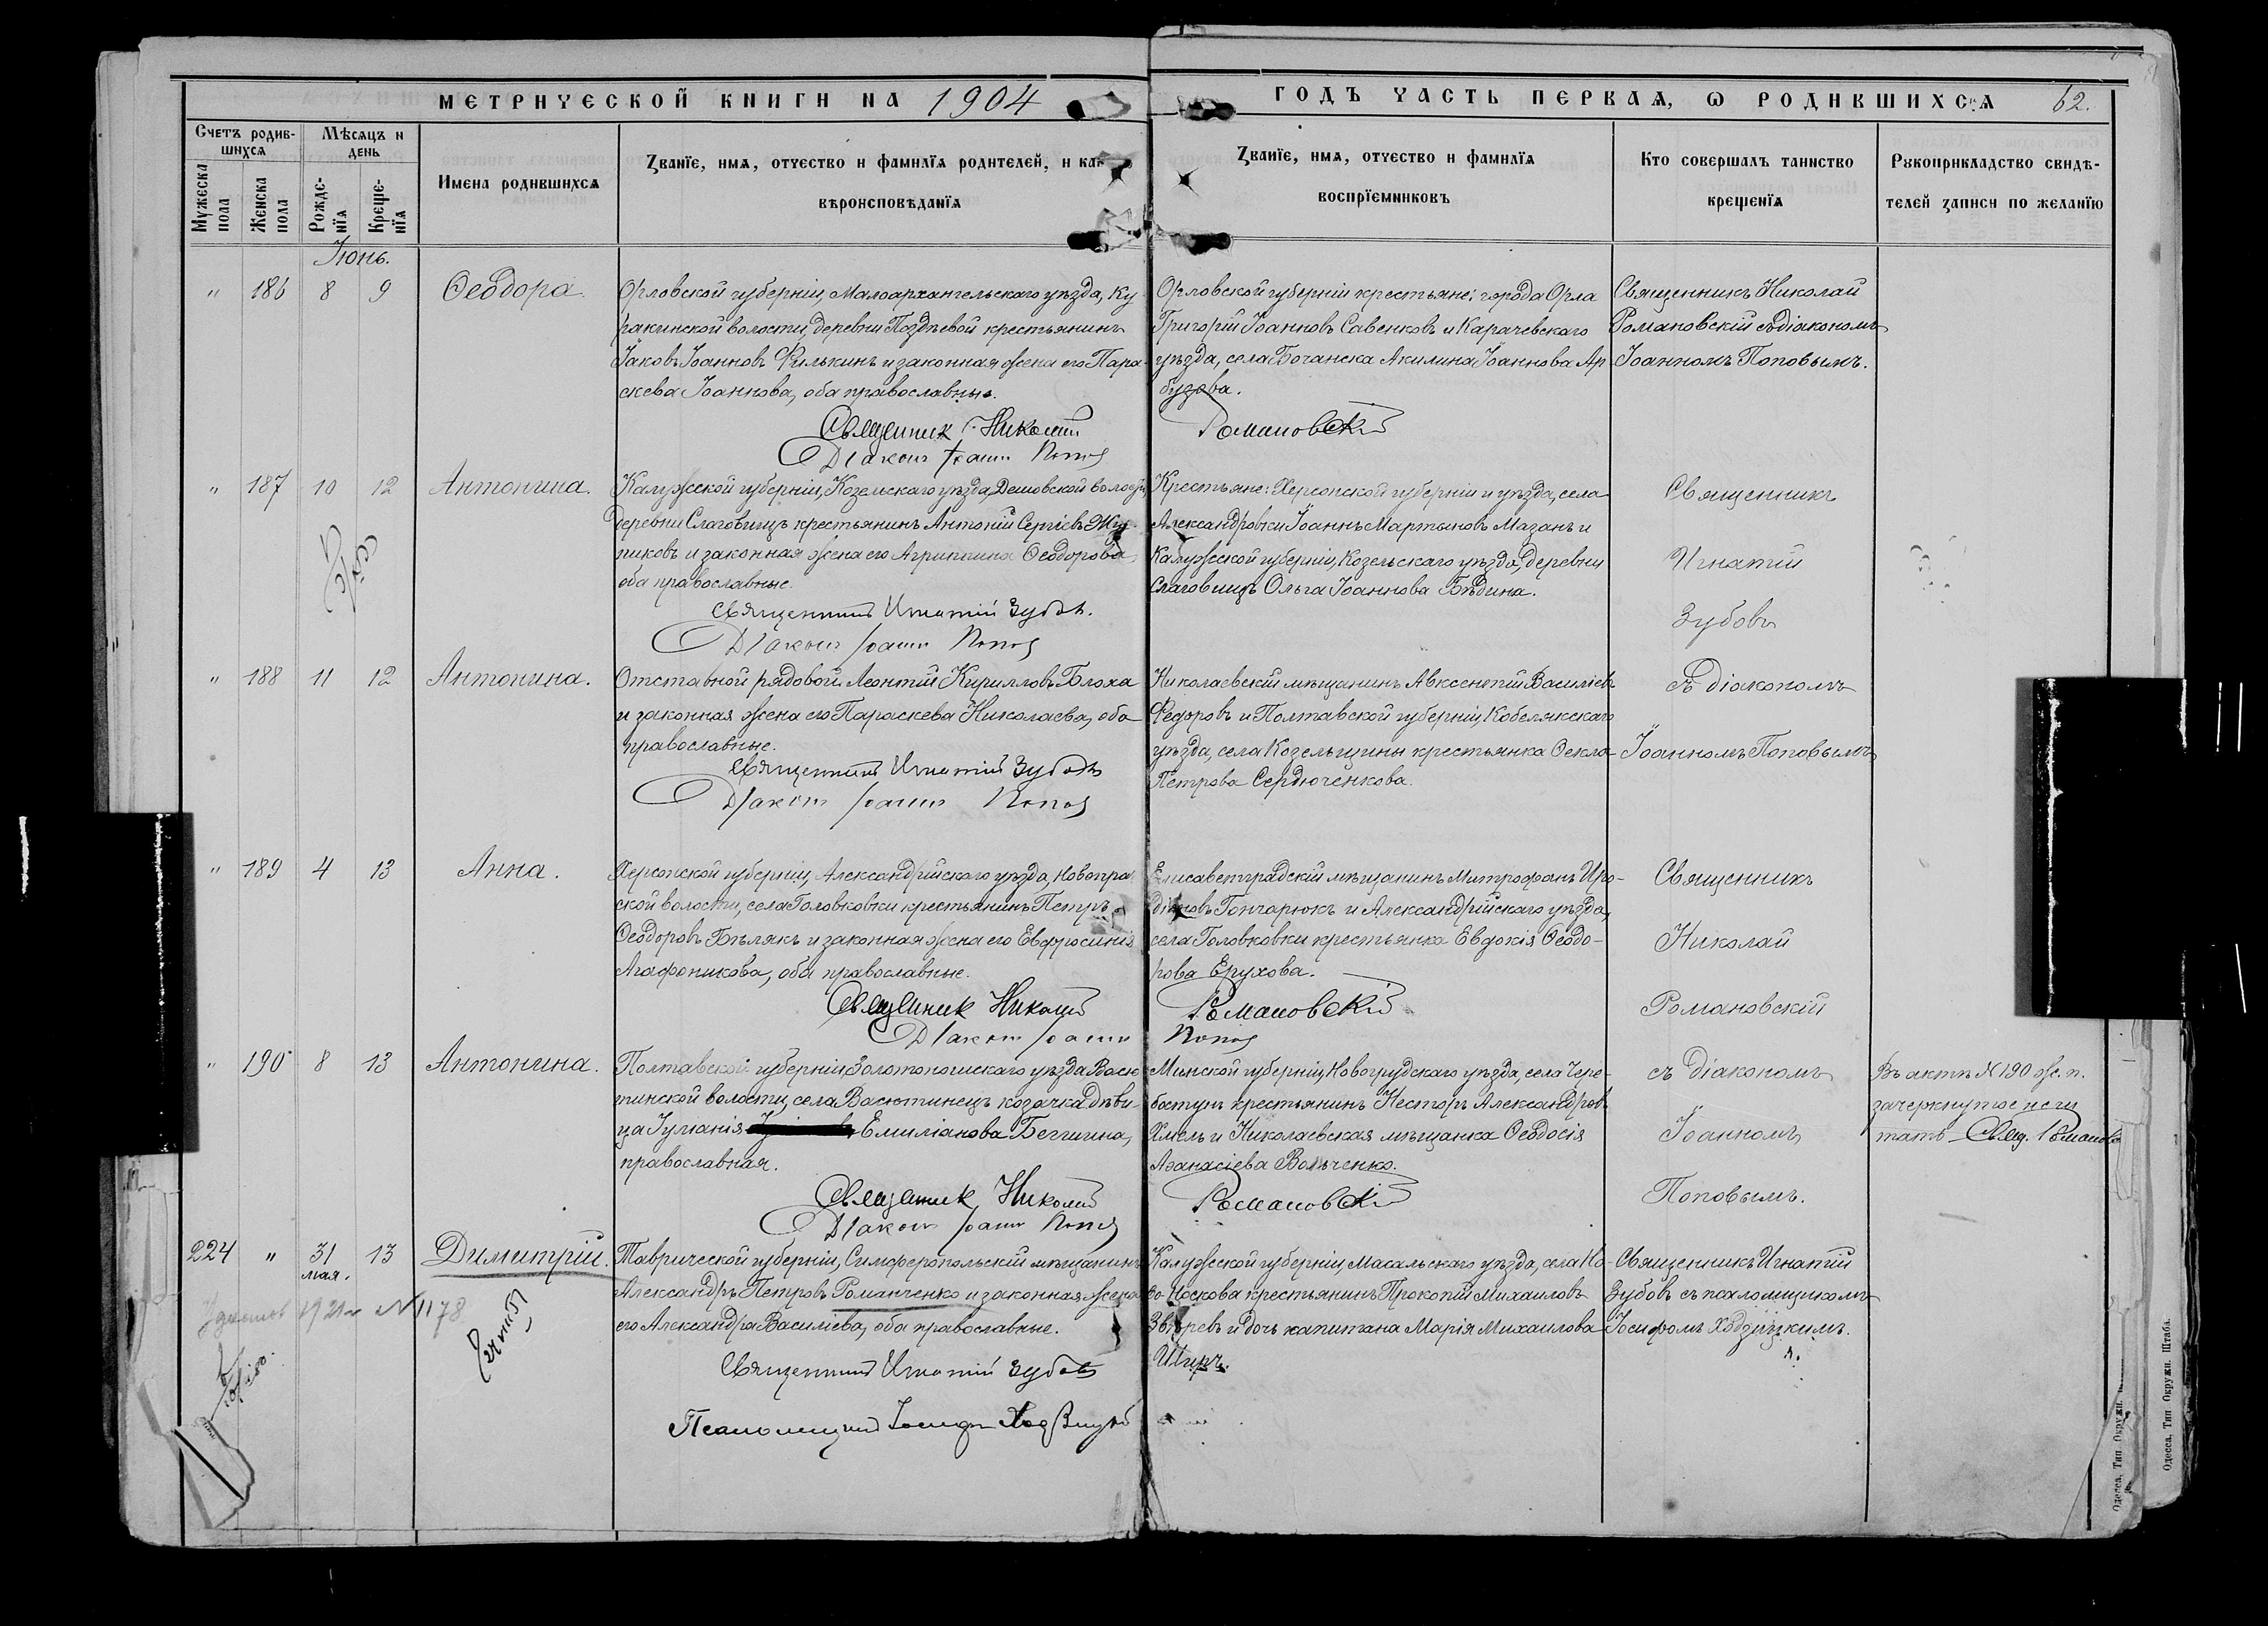 МЕТРИЧЕСКОЙ КНИГИ НА 1904
ГОДЪ ЧАСТЬ ПЕРВАЯ, Ѡ РОДИВШИХСЯ 62.
Счетъ родив-
шихся
Мѣсяцъ и
день
Мужеска
пола
Женска
пола
Рожде-
нїя
Креще-
нїя
Имена родившихся
Званїе, имя, отчество и фамилїя родителей, и как
вѣроисповѣданїя
Званїе, имя, отчество и фамилїя
воспрїемниковъ
Кто совершалъ таинство
крещенїя
Рукоприкладство свидѣ-
телей записи по желанїю
Іюнь.
" 186 8 9 Ѳеодора.
Орловской губерніи, Малоархангельскаго уѣзда, Ку
ракинской волости, деревни Поздѣевой крестьянинъ
Іаковъ Іоанновъ Филькинъ и законная жена его Пара-
скева Іоаннова, оба православные.
Священник Николай
Діаконъ Іоанн Попов
Орловской губерніи крестьяне: города Орла
Григорій Іоанновъ Савенковъ и Карачевскаго
уѣзда, села Бочанска Акилина Іоаннова Ар-
бузова.
Романовский
Священникъ Николай
Романовскій съ діакономъ
Іоанномъ Поповымъ.
" 187 10 12 Антонина.
Калужской губерніи, Козельскаго уѣзда, Дешовской волости
деревни Слаговищъ крестьянинъ Антоній Сергіевъ
никовъ и законная жена его Агриппина Ѳеодорова
оба православные.
Священникъ Игнатій Зубовъ.
Діаконъ Іоанн Попов
Крестьяне: Херсонской губерніи и уѣзда, села
Александровки Іоаннъ Мартыновъ Мазанъ и
Калужской губерніи, Козельскаго уѣзда, деревни
Слаговищъ Ольга Іоаннова Бѣдина.
Священникъ
Игнатій
Зубовъ
" 188 11 12 Антонина.
Отставной рядовой Леонтій Кирилловъ Блоха
и законная жена его Параскева Николаева, оба
православные.
Священникъ Игнатій Зубовъ
Діаконъ Іоанн Попов
Николаевскій мѣщанинъ Авксентій Василіевъ
Федоровъ и Полтавской губерніи, Кобелякскаго
уѣзда, села Козельщины крестьянка Ѳекла
Петрова Сердюченкова.
съ діакономъ
Іоанномъ Поповымъ
" 189 4 13 Анна.
Херсонской губерніи, Александрійскаго уѣзда, Новопра
ской волости, села Головковки крестьянинъ Петръ
Ѳеодоровъ Бѣлякъ и законная жена его Евфросинія
Агафоникова, оба православные.
Священник Николай
Діаконъ Іоанн
Елисаветградскій мѣщанинъ Митрофанъ Иро-
діоновъ Гончарюкъ и Александрійскаго уѣзда,
села Головковки крестьянка Евдокія Ѳеодо-
рова Ерухова.
Романовский
Попов
Священникъ
Николай
Романовскій
" 190 8 13 Антонина.
Полтавской губерніи, Золотоношскаго уѣзда Васю
тинской волости, села Васютинецъ козачка дѣви-
ца Іуліанія Емиліанова
православная.
Священник Николай
Діаконъ Іоанн Попов
Минской губерніи, Новогрудскаго уѣзда, села Чере-
крестьянинъ Несторъ Александровъ
Хмель и Николаевская мѣщанка Ѳеодосія
Аѳанасіева Вольченко.
Романовский
съ Діакономъ
Іоанномъ
Поповымъ.
Въ актѣ N 190 ж. п.
зачеркнутое не чи
тать - Свящ. Романов
224 " 31 мая. 13 Димитрій.
Таврической губерніи, Симферопольскій мѣщанинъ
Александръ Петровъ Романченко и законная жена
его Александра Василіева, оба православные.
Священникъ Игнатій Зубовъ
Псаломщикъ Іосифъ Ходзицкій
Калужской губерніи, Масальскаго уѣзда, села Но-
во-Носкова крестьянинъ Прокопій Михаиловъ
Звѣревъ и дочь капитана Марія Михаилова
Священникъ Игнатій
Зубовъ съ псаломщикомъ
Іосифомъ Ходзицкимъ.
1921 г N 1178
Одесса, Тип Окружн. Штаба.